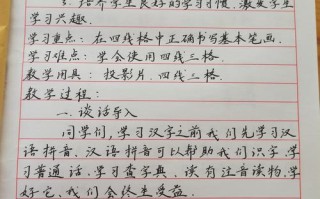 3. 培养学生良好的学习习惯，激发学生
学习兴趣。
学习重点：在四线格中正确书写基本笔画。
学习难点：学会使用四线三格。
教学用具：投影片、四线三格。
教学过程：
一、谈话导入
同学们，学习汉字之前我们先学习汉
语拼音，汉语拼音可以帮助我们识字，学
习普通话，学查字典，读有注音读物，学
好它，我们会终生受益。